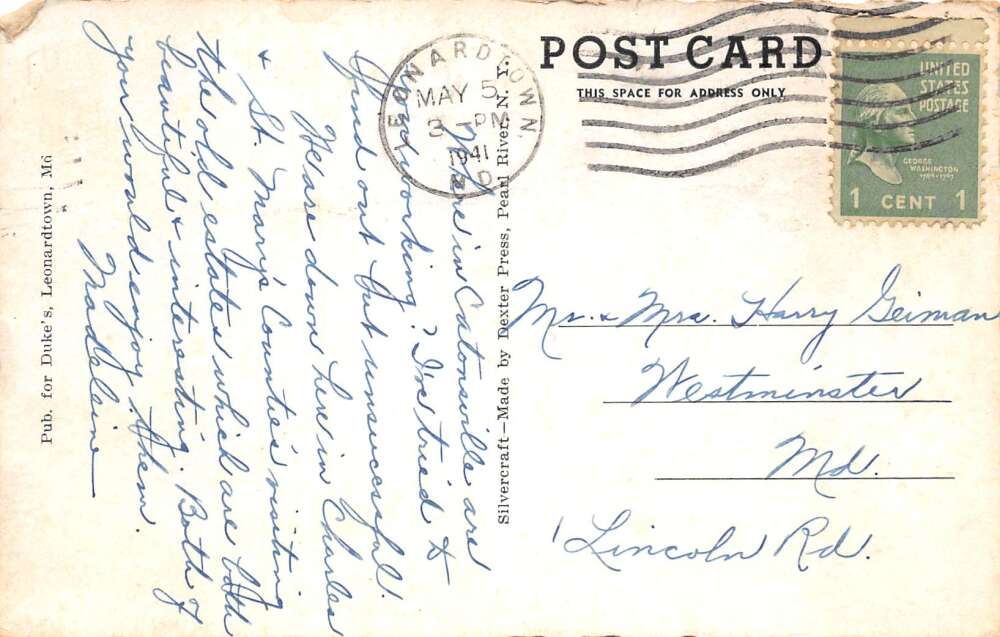 POST CARD
THIS SPACE FOR ADDRESS ONLY
LEONARDTOWN,
MAY 5
3 - PM
1941
MD.
UNITED
STATES
POSTAGE
GEORGE
WASHINGTON
1789-1797
1 CENT 1
Where in Catonsville are
you working? I've tried to
find out but unsuccessful!
We are down here in Charles
& St. Mary's Counties visiting
the old estates which are both
beautiful & interesting. Both of
you would enjoy them.
Madelaine
Mr. & Mrs. Harry Geiman
Westminster
Md.
Lincoln Rd.
Pub. for Duke's, Leonardtown, Md
Silvercraft—Made by Dexter Press, Pearl River, N. Y.